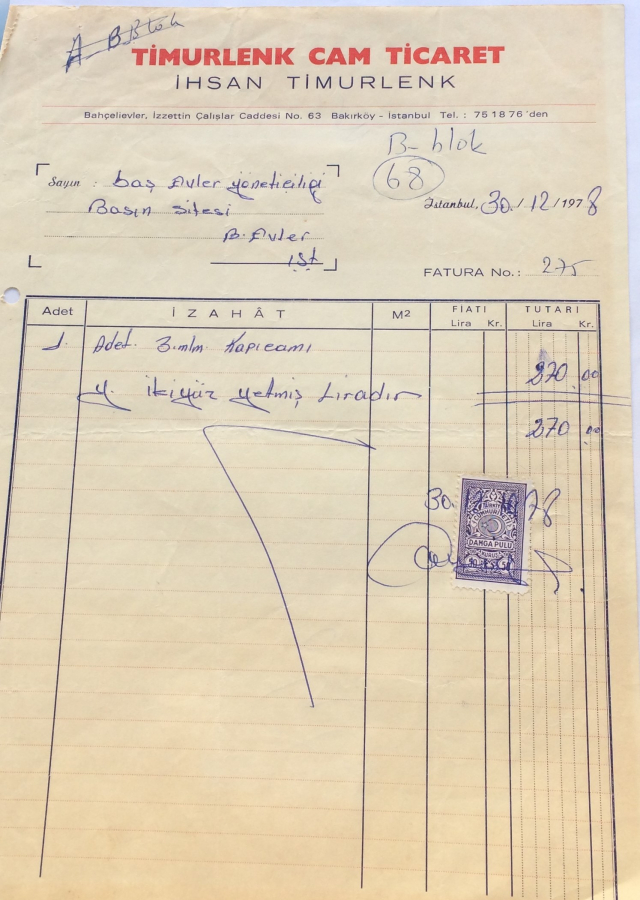 A B Blok
TİMURLENK CAM TİCARET
İHSAN TİMURLENK
Bahçelievler, İzzettin Çalışlar Caddesi No. 63 Bakırköy - İstanbul Tel. : 75 18 76 'den
B- blok
68
Sayın : baş Evler yöneticiliği
Basın sitesi
B. Evler
işt
İstanbul, 30 / 12 / 1978
FATURA No.: 275
Adet İZAHÂT M2 FİATI TUTARI
Lira Kr. Lira Kr.
1. Adet 3.m/m. Kapıcamı 270.00
Y. İkiyüz yetmiş Liradır
270.00
30 78
DAMGA PULU